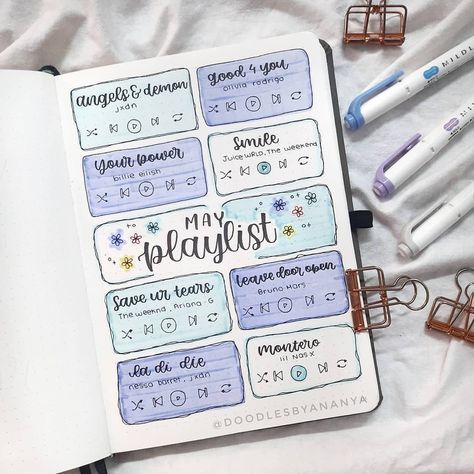 angels & demon
jxdn
good 4 you
olivia rodrigo
Your power
billie eilish
Smile
Juice WRLD, The weekend
MAY
playlist
Save ur tears
The weeknd, Ariana G
leave door open
Bruno Mars
la di die
nessa barret, jxdn
Montero
lil Nas x
@DOODLESBYANANYA
MILDL